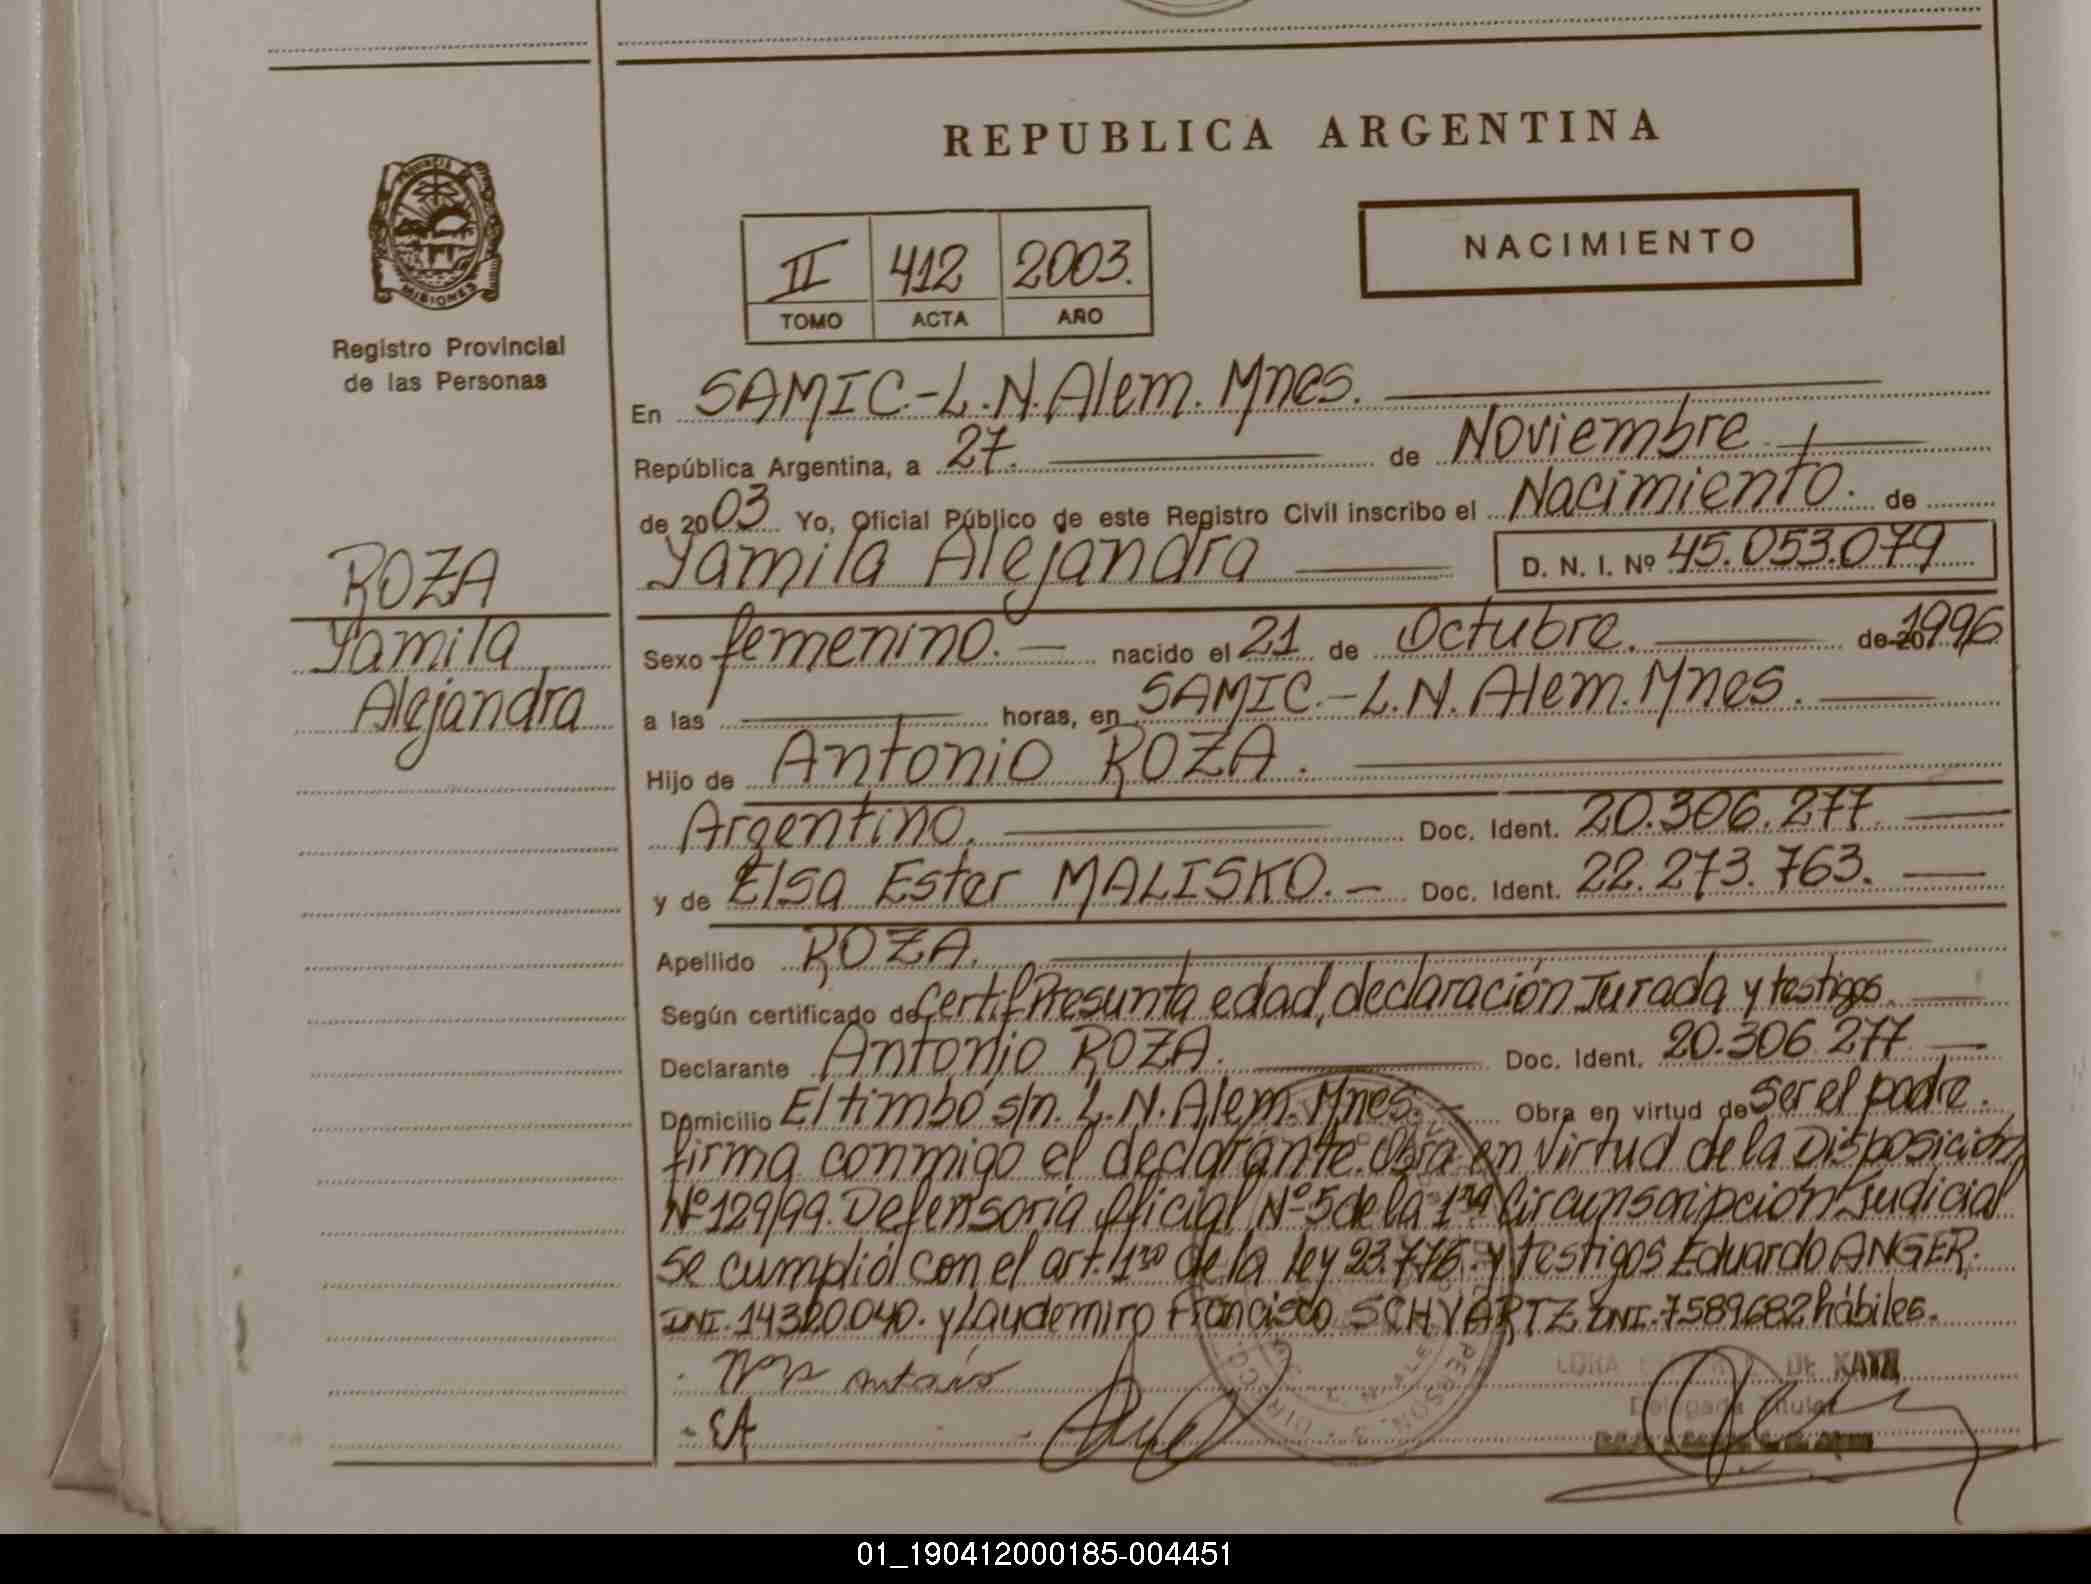 REPUBLICA ARGENTINA
PROVINCIA DE
MISIONES
Registro Provincial
de las Personas
NACIMIENTO
II 412 2003.
TOMO ACTA AÑO
En SAMIC.-L.N.Alem.Mnes.
República Argentina, a 27. de Noviembre
de 2003 Yo, Oficial Público de este Registro Civil inscribo el Nacimiento. de
Yamila Alejandra D. N. I. Nº 45.053.079
ROZA
Yamila
Alejandra
Sexo femenino.- nacido el 21 de Octubre. de 20 1996
a las horas, en SAMIC.-L.N.Alem.Mnes.
Hijo de Antonio ROZA.
Argentino. Doc. Ident. 20.306.277.
y de Elsa Ester MALISKO.- Doc. Ident. 22.273.763.
Apellido ROZA.
Según certificado de Certif Presunta edad, declaración Jurada y testigos.
Declarante Antonio ROZA. Doc. Ident. 20.306.277
Domicilio El timbó s/n. L.N.Alem.Mnes.- Obra en virtud de ser el padre.
firma conmigo el declarante. Obra en virtud de la Disposición
Nº129/99. Defensoria oficial Nº5 de la 1ra Circunscripción Judicial
Se cumplió con el art. 1ro de la ley 23.776 y testigos Eduardo ANGER.
DNI. 14320040. y Laudemiro Francisco SCHVARTZ DNI. 7589682 hábiles.
DE KATZ
Delegada Titular
01_190412000185-004451